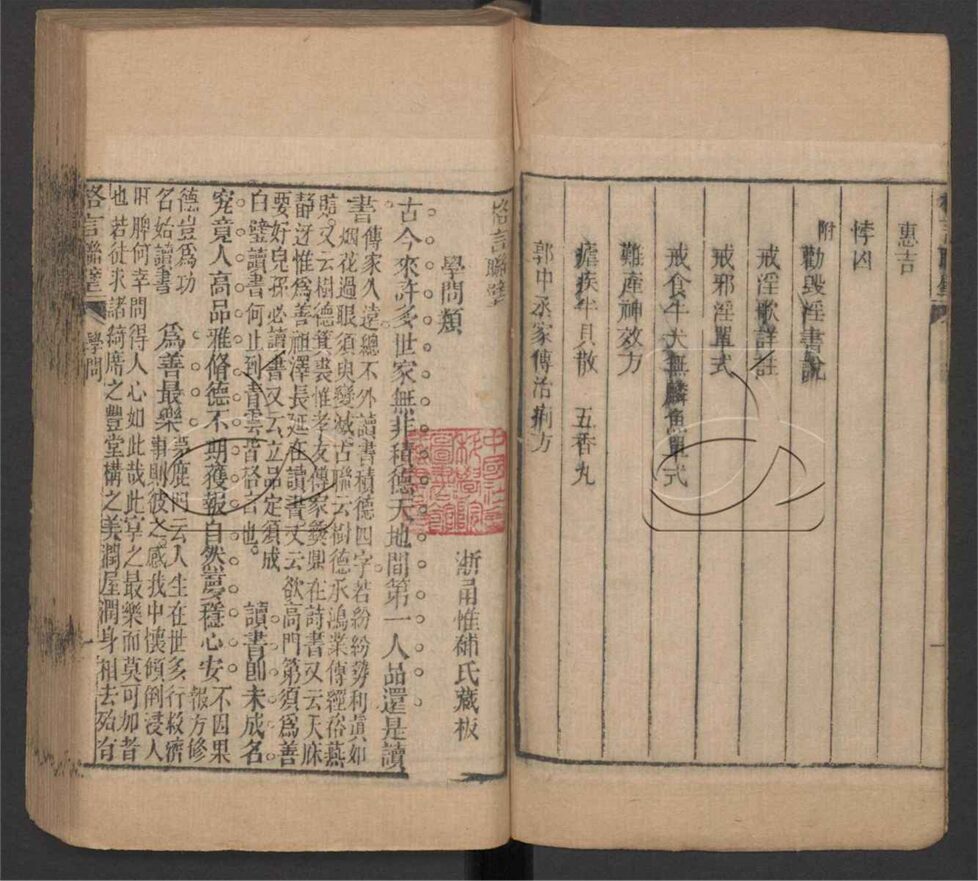 惠吉
悖凶
附
勸毀淫書說
戒淫歌詳註
戒邪淫單式
戒食牛犬無鱗魚單式
難產神效方
瘧疾半貝散 五香丸
郭中丞家傳治痢方
格言聯璧
浙甬惟補氏藏板
學問類
古今來許多世家無非積德天地間第一人品還是讀
書傳家久遠總不外讀書積德四字若紛紛勢利眞如
烟花過眼須臾變滅古聯云樹德承鴻業傳經裕燕
貽又云樹德箕裘惟孝友傳家彝鼎在詩書又云天庥
靜迓惟爲善祖澤長延在讀書又云欲高門第須爲善
要好兒孫必讀書又云立品定須成
白璧讀書何止到青雲皆格言也 讀書即未成名
究竟人高品雅脩德不期獲報自然夢穩心安 不因果報方修
德豈爲功名始讀書 爲善最樂
夢鹿門云人生在世多行救濟
事則彼之感我中懷傾倒浸人
肝脾何幸問得人心如此哉此享之最樂而莫可加者
也若徒求諸綺席之豐堂構之美潤屋潤身相去殆有
格言聯璧 學問 一